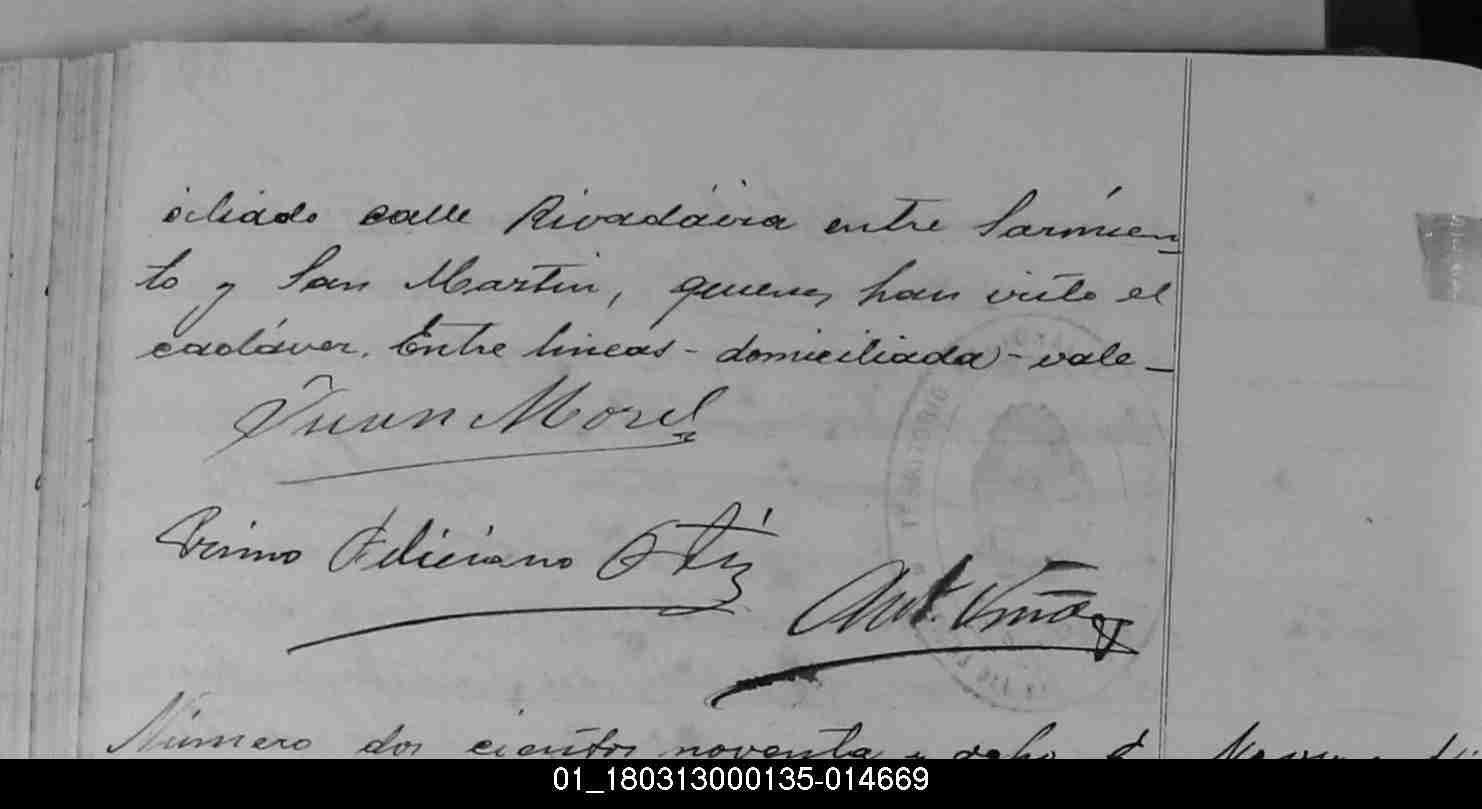 ciliado calle Rivadávia entre Sarmien
to y San Martin, quienes han visto el
cadáver. Entre lineas - domiciliada - vale -
Juan Morel
Primo Feliciano Ortiz
Ant.
TERRITORIO
Número dos cientos noventa y ocho
01_180313000135-014669